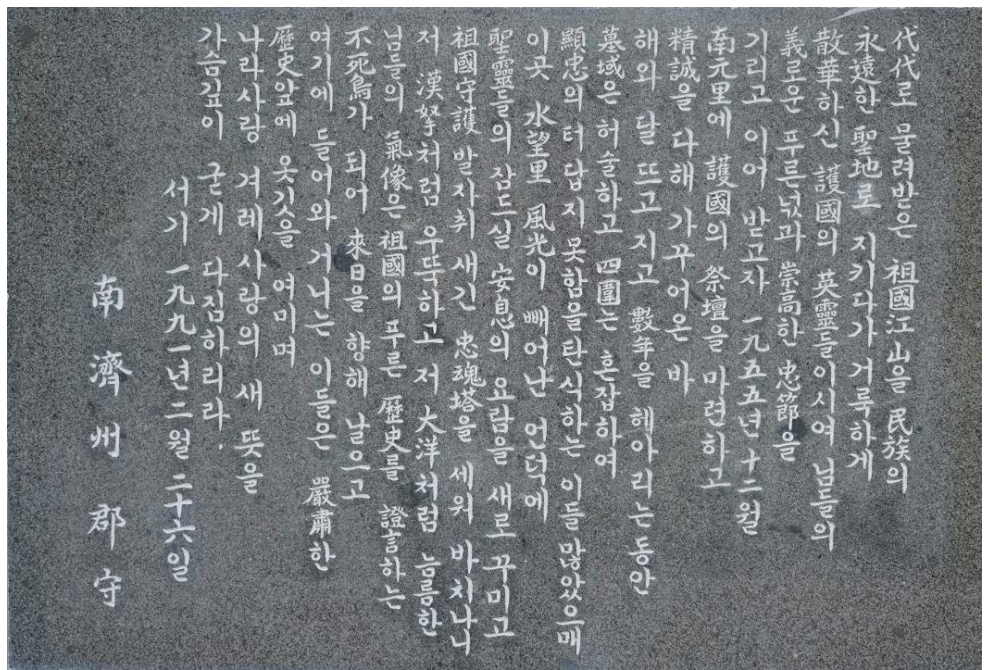 代代로 물려받은 祖國江山을 民族의
永遠한 聖地로 지키다가 거룩하게
散華하신 護國의 英靈들이시여 님들의
義로운 푸른넋과 崇高한 忠節을
기리고 이어 받고자 一九五五년 十二월
南元里에 護國의 祭壇을 마련하고
精誠을 다해 가꾸어온 바
해와 달 뜨고 지고 數年을 헤아리는 동안
墓域은 허술하고 四圍는 혼잡하여
顯忠의 터답지 못함을 탄식하는 이들 많았으매
이곳 水望里 風光이 빼어난 언덕에
聖靈들의 잠드실 安息의 요람을 새로 꾸미고
祖國守護 발자취 새긴 忠魂塔을 세워 바치나니
저 漢拏처럼 우뚝하고 저 大洋처럼 늠름한
님들의 氣像은 祖國의 푸른 歷史를 證言하는
不死鳥가 되어 來日을 향해 날으고
여기에 들어와 거니는 이들은 嚴肅한
歷史앞에 옷깃을 여미며
나라사랑 겨레사랑의 새 뜻을
가슴깊이 굳게 다짐하리라.
서기 一九九一년 二월 二十六일
南濟州郡守